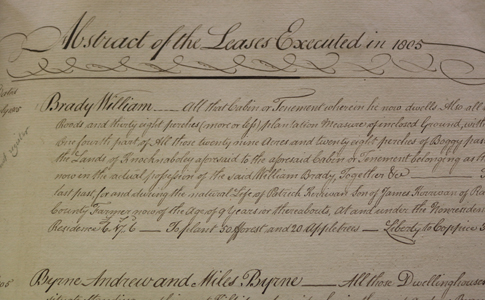 Abstract of the Leases Executed in 1805
Brady William All that Cabin or Tenement wherein he now dwells Also all
Roods and thirty eight perches (more or less) plantation Measure of inclosed Ground, with
one fourth part of All those twenty nine Acres and twenty eight perches of Boggy
the Lands of aforesaid to the aforesaid Cabin or Tenement belonging as th
now in the actual possession of the said William Brady, Together &c
last past, for and during the natural Life of Patrick Son of James of
County Farmer now of the Age of 9 Years or thereabouts, At and under the
Residence To plant 30 forest and 20 Appletrees Liberty to Coppice
Byrne Andrew and Miles Byrne All those Dwellinghouse